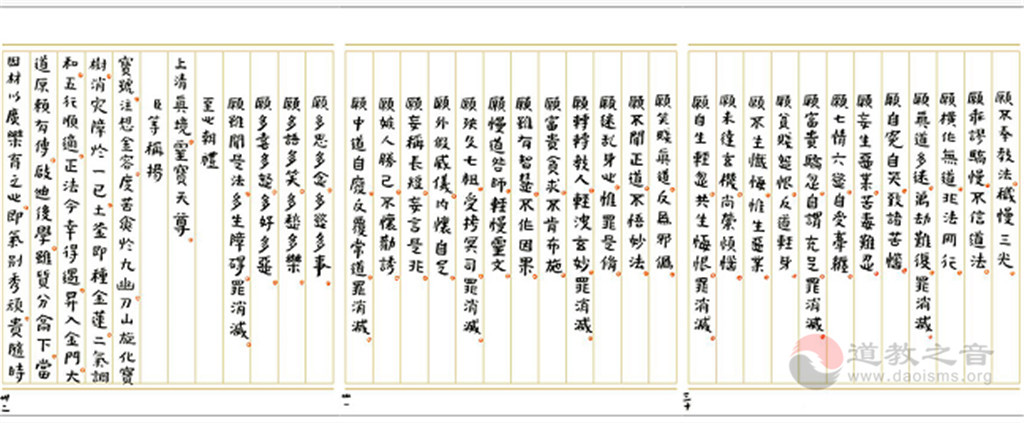 願不奉教法穢慢三光
願乖謬驕慢不信道法
願橫作無道非法罔行
願無道多迷萬劫難復罪消滅
願自寃自哭致諸苦惱
願妄生惡業苦毒難忍
願七情六慾自受牽纏
願富貴驕忽自謂充足罪消滅
願貧賤怨恨反道輕身
願不生懺悔惟生惡業
願未達玄機尚縈煩惱
願自生輕忽共生悔恨罪消滅
三十
願笑賤真道反亟邪偽
願不聞正道不悟妙法
願迷乱身心惟罪是脩
願轉轉教人輕洩玄妙罪消滅
願富貴貪求不肯布施
願雖有智慧不作因果
願慢道咎師輕慢靈文
願殃久七祖受拷冥司罪消滅
願外假威儀內懷自足
願妄稱長短妄言是非
願嫉人勝己不懷勤誘
願中道自廢反覆常道罪消滅
卅一
願多思多念多慾多事
願多語多笑多愁多樂
願多喜多怒多好多惡
願雖聞是法多生障碍罪消滅
至心朝禮
上清真境靈寶天尊
臣等稱揚
寶號注想金容度苦爽於九幽刀山旋化寶
樹消灾障於一己土釜即種金蓮二氣調
和五行順適正法今幸得遇昇入金門大
道原賴有傳啟迪後學雖質分高下當
因材以廣樂育之心即氣别秀頑貴隨時
卅二
道教之音
www.daoisms.org